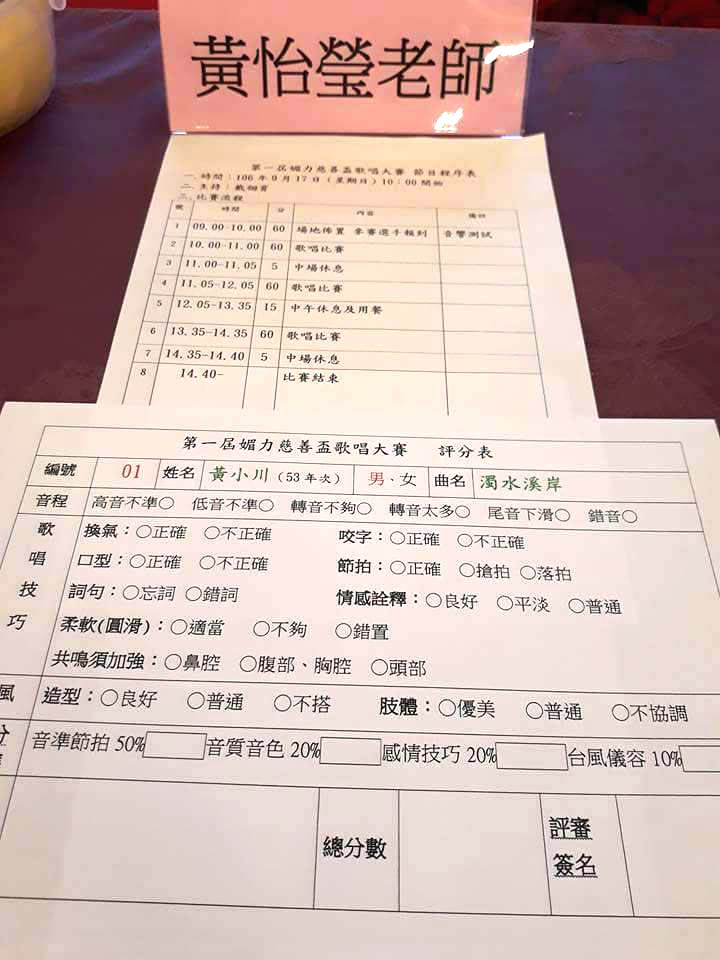 黃怡瑩老師
第一屆媚力慈善盃歌唱大賽 節目程序表
一、時間：106年9月17日(星期日)10:00開始
二、主持：
三、比賽流程
號 時間 分 內容 備註
1 09.00-10.00 60 場地佈置 參賽選手報到 音響測試
2 10.00-11.00 60 歌唱比賽
3 11.00-11.05 5 中場休息
4 11.05-12.05 60 歌唱比賽
5 12.05-13.35 15 中午休息及用餐
6 13.35-14.35 60 歌唱比賽
7 14.35-14.40 5 中場休息
8 14.40- 比賽結束
第一屆媚力慈善盃歌唱大賽 評分表
編號 01 姓名 黃小川(53年次) 男、女 曲名 濁水溪岸
音程 高音不準○ 低音不準○ 轉音不夠○ 轉音太多○ 尾音下滑○ 錯音○
歌唱技巧 換氣：○正確 ○不正確 咬字：○正確 ○不正確
口型：○正確 ○不正確 節拍：○正確 ○搶拍 ○落拍
詞句：○忘詞 ○錯詞 情感詮釋：○良好 ○平淡 ○普通
柔軟(圓滑)：○適當 ○不夠 ○錯置
共鳴須加強：○鼻腔 ○腹部、胸腔 ○頭部
風 造型：○良好 ○普通 ○不搭 肢體：○優美 ○普通 ○不協調
音準節拍 50% 音質音色 20% 感情技巧 20% 台風儀容 10%
總分數 評審簽名